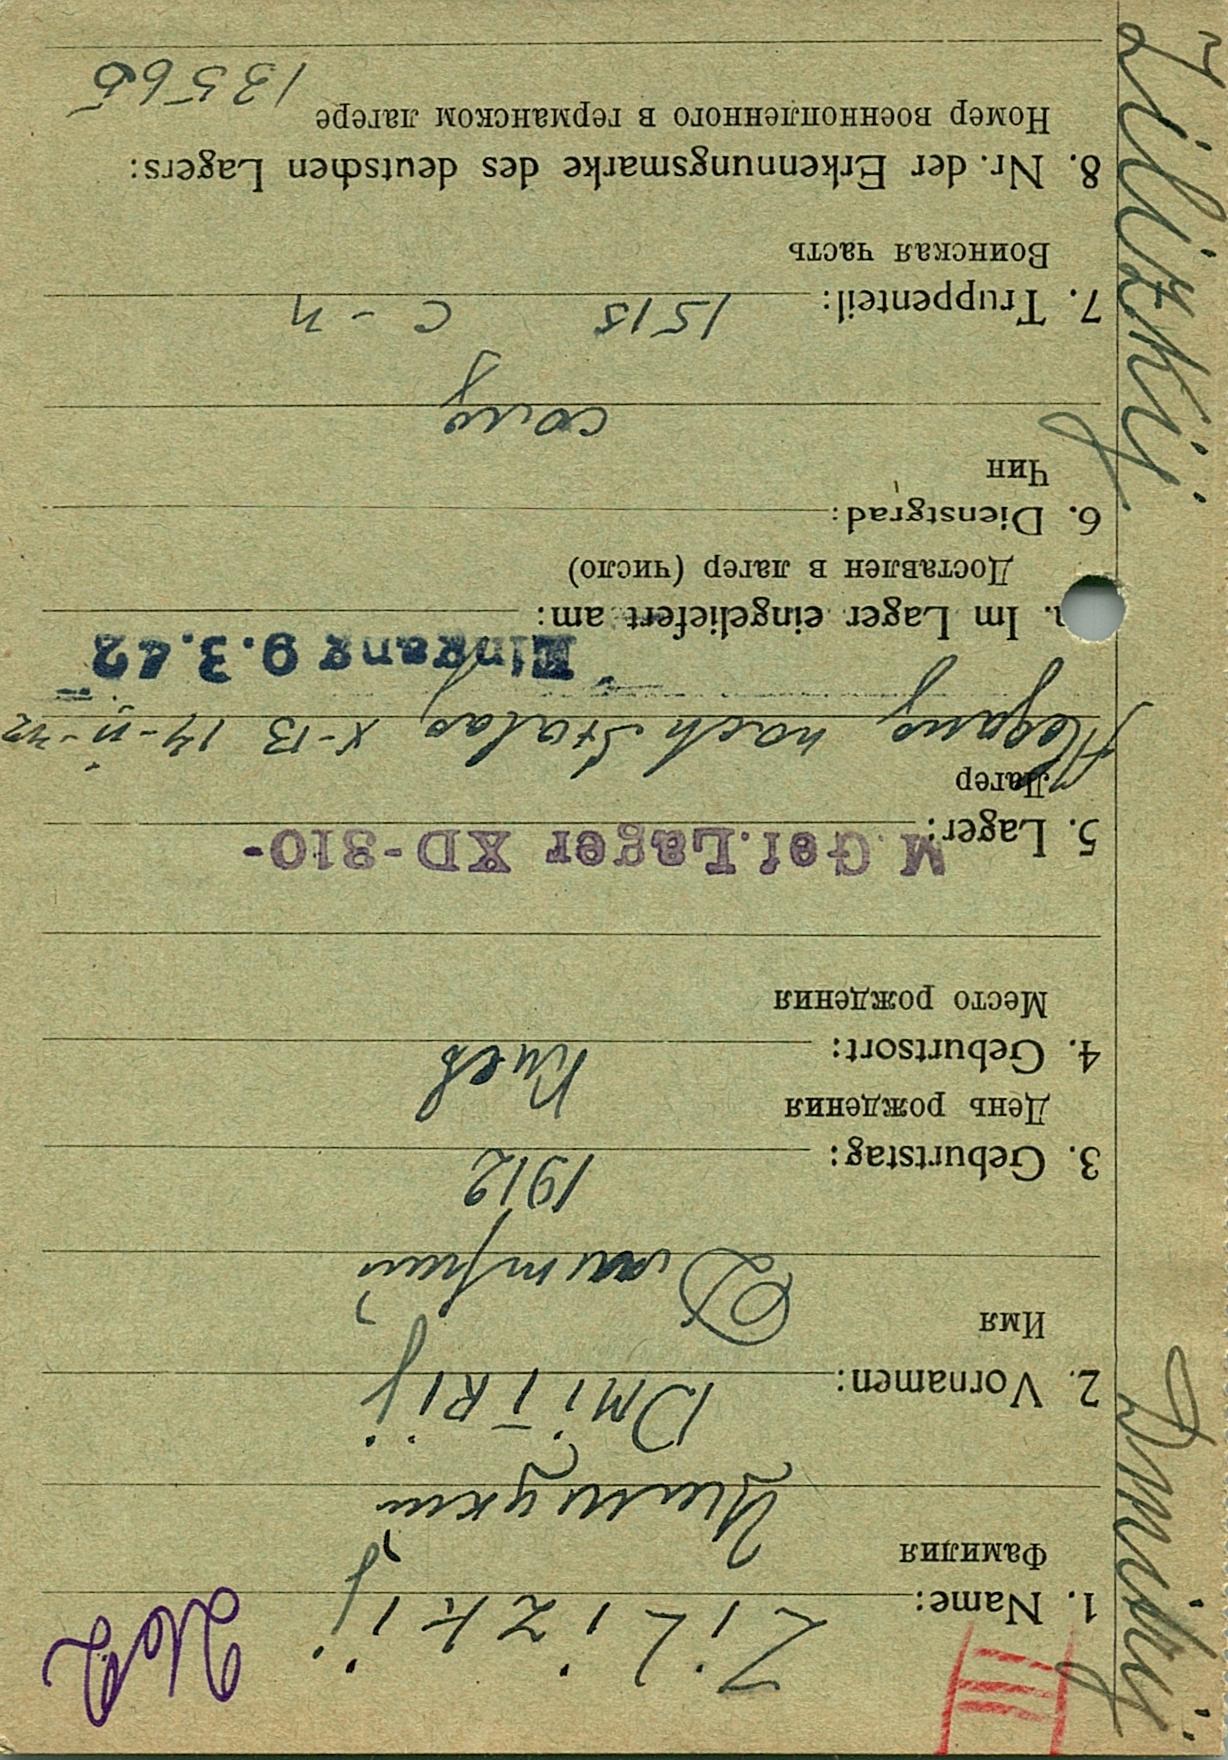 III
1. Name: ZiLiZKij
Фамилия
Цилицкий
2. Vornamen: DMiTRij
Имя
Дмитрий
3. Geburtstag: 1912
День рождения
4. Geburtsort: Киев
Место рождения
5. Lager: M.Gef.Lager XD-310-
Лагер
nach Stalag X-B 14-V-42
Eingang 9.3.42
a. Im Lager eingeliefert am:
Доставлен в лагер (число)
6. Dienstgrad:
Чин
солд
7. Truppenteil: 1515 с-п
Воинская часть
8. Nr. der Erkennungsmarke des deutschen Lagers:
Номер военнопленного в германском лагере
13565
Dmitrij Zilizkij